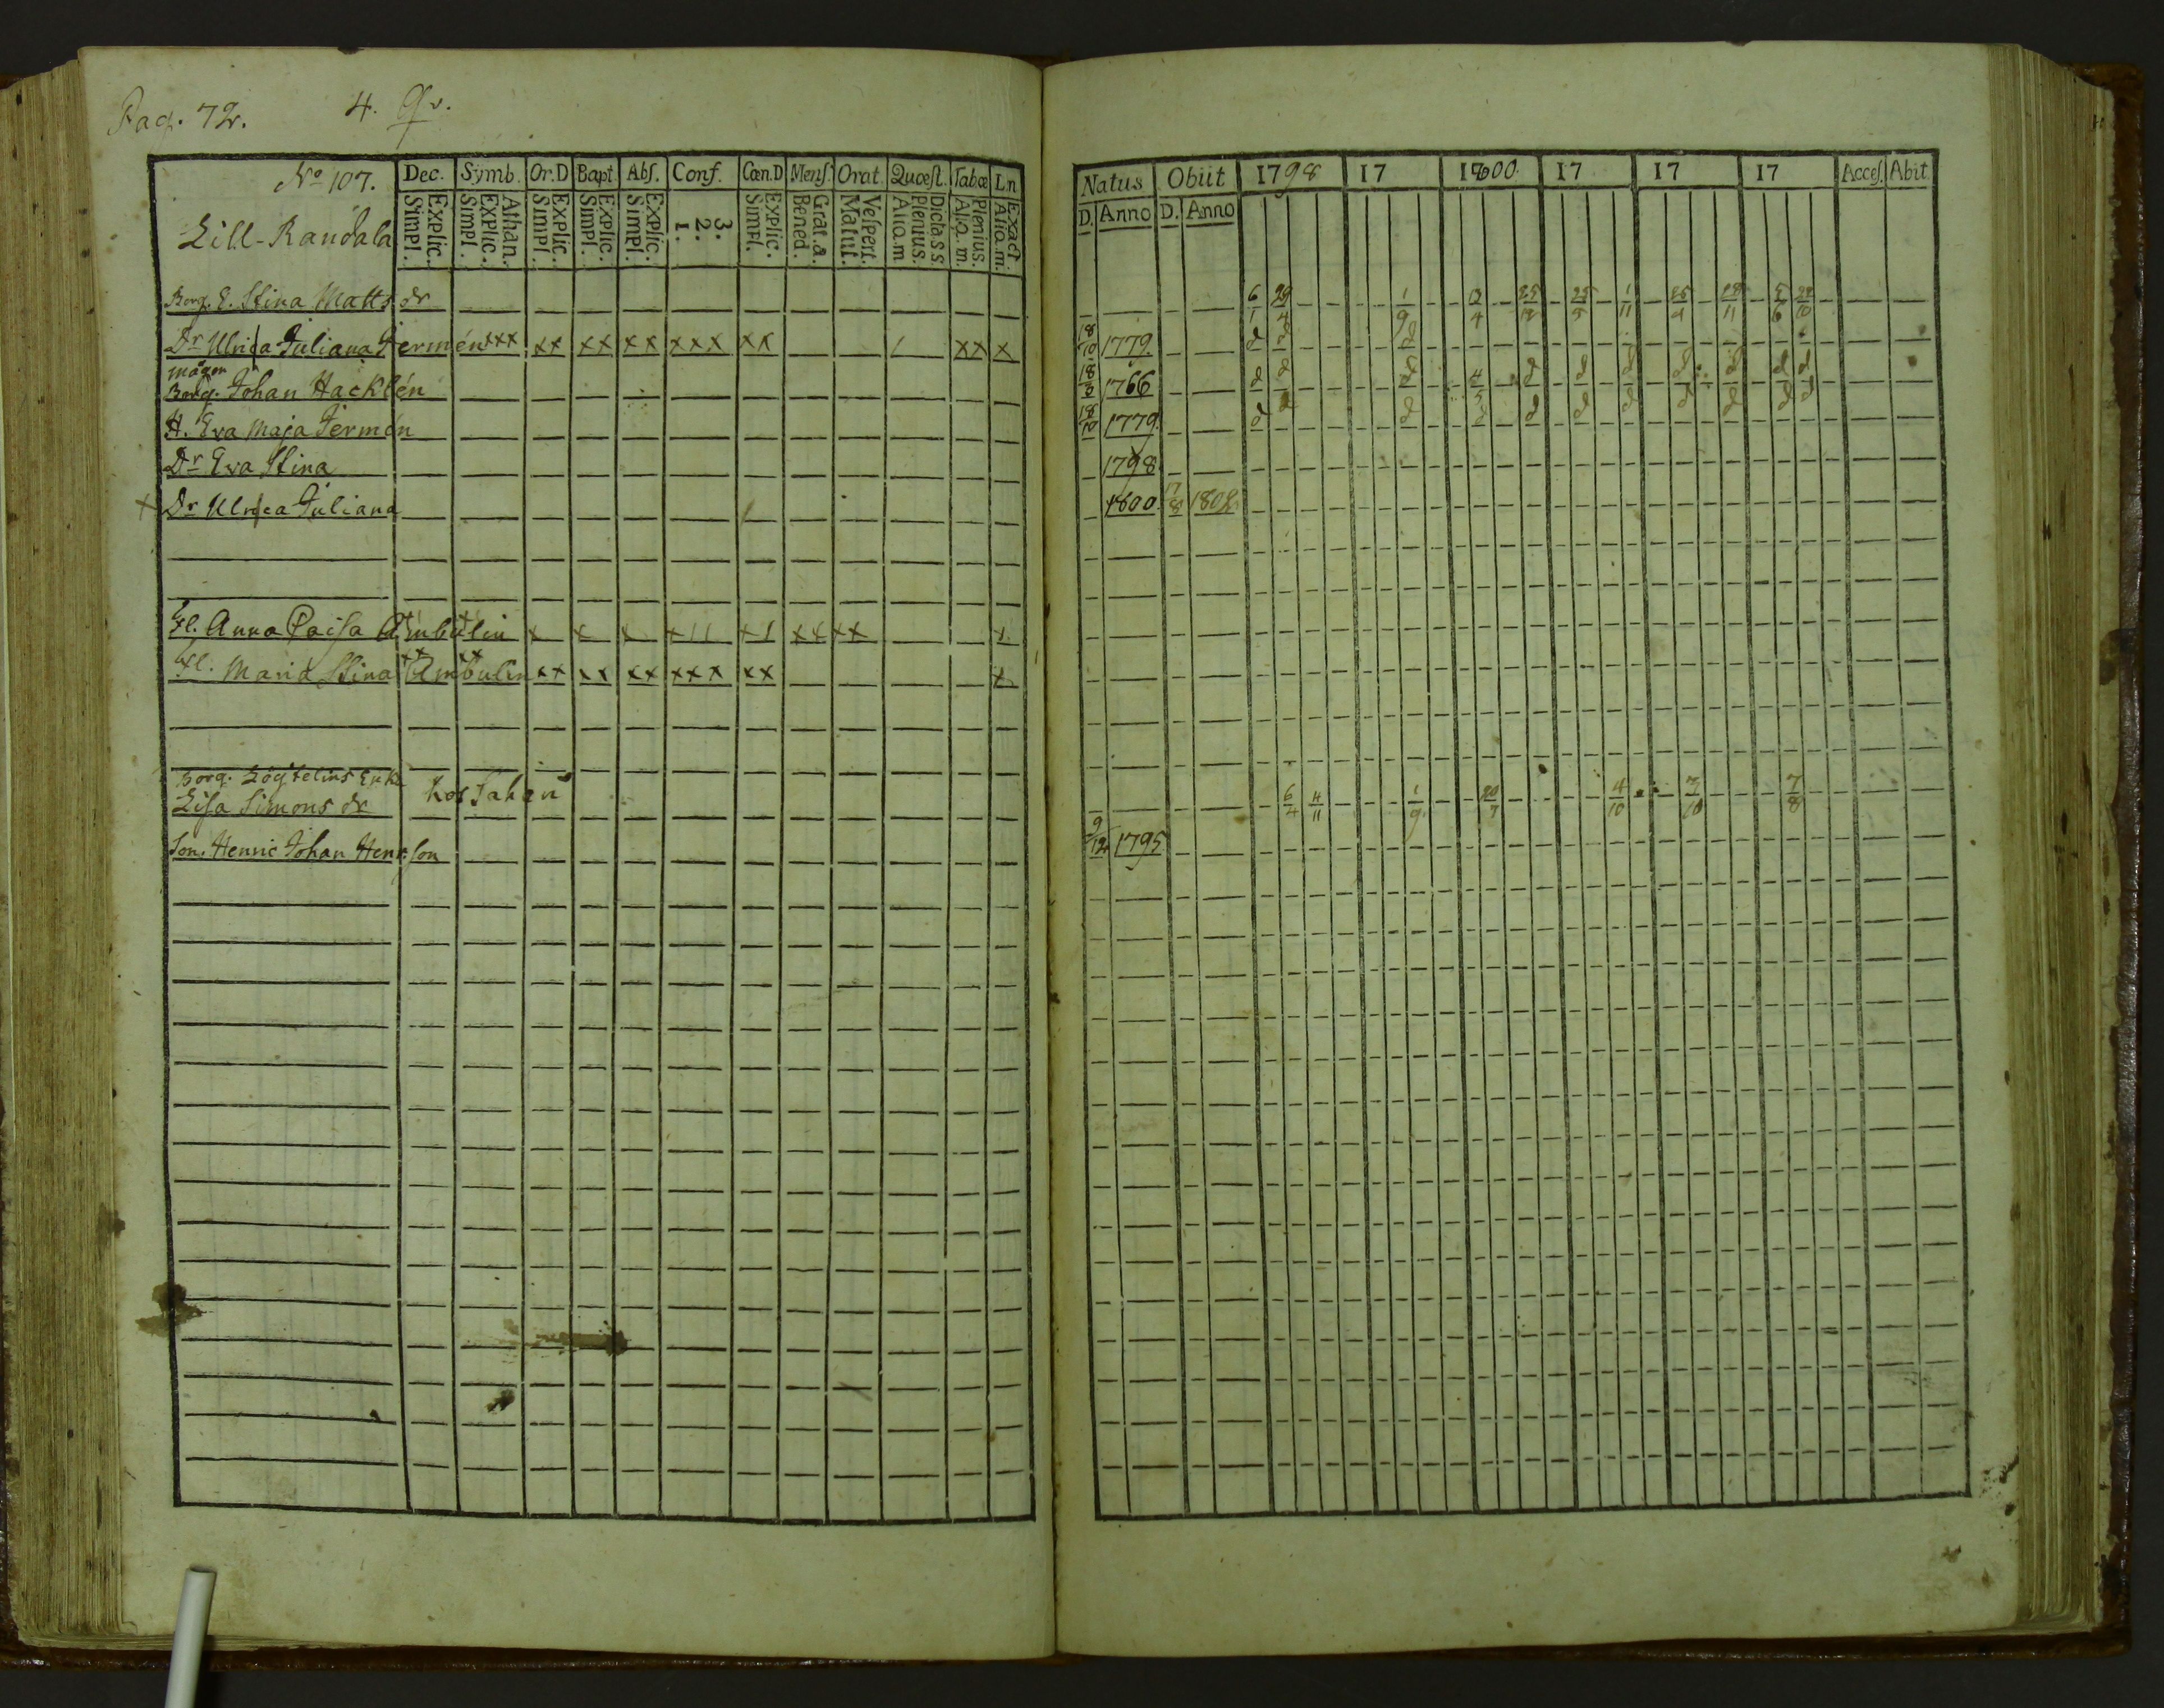 Pag. 72. 4. Qv.
No 107. Dec. Symb. Or.D Bapt. Abſ. Conf. Cœn.D Menſ. Orat. Quœſt. Tabœ Ln
Lill-Randala
Explic. Simpl. Athan. Explic. Simpl. Explic. Simpl. Explic. Simpl. Explic. Simpl. 3. 2. 1. Explic. Simpl. Grat.a. Bened. Veſpert. Matut. Dicta.s s. Plenius. Aliq.m Plenius. Aliq.m. Exact Aliq.m.
Borg. E. Stina Matts dr
Dr Ulrica Juliana Jermén xxx xx xx xx xxx xx / xx x
mågen
Borg. Johan Hacklén
H. Eva Maja Jermén
Dr Eva Stina
+ Dr Ulrica Juliana
Anna Caisa Ambulin x x x x11 x1 xx xx x
Maria Stina Ambulin xx xx xx xxx xx x
Borg. Enka
Lisa Simons dr
Son. Henric Johan Henr. son
Natus Obiit 1798 17 1800 17 17 17 Acceſ. Abit
D. Anno D. Anno
6/1 29/4 1/9 25/5 1/11 5/6
18/10 1779 d d d
1766 d d d 4/5 d d d d d d d
18/10 1779 d d d d d d d d d d d
1798
1800 17/8 1802
6/4 4/11 1/9 20/7 4/10 3/10 7/8
9/12 1795